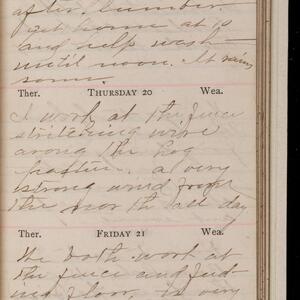 after lumber.
get home at 10
and help wash
until noon. It rains
some.
Ther. THURSDAY 20 Wea.
I work at the fence
stritching wire
arong the hog
pasture. a very
strong wind from
the nor th all day
Ther. FRIDAY 21 Wea.
We both work at
the fence and
floor, is very